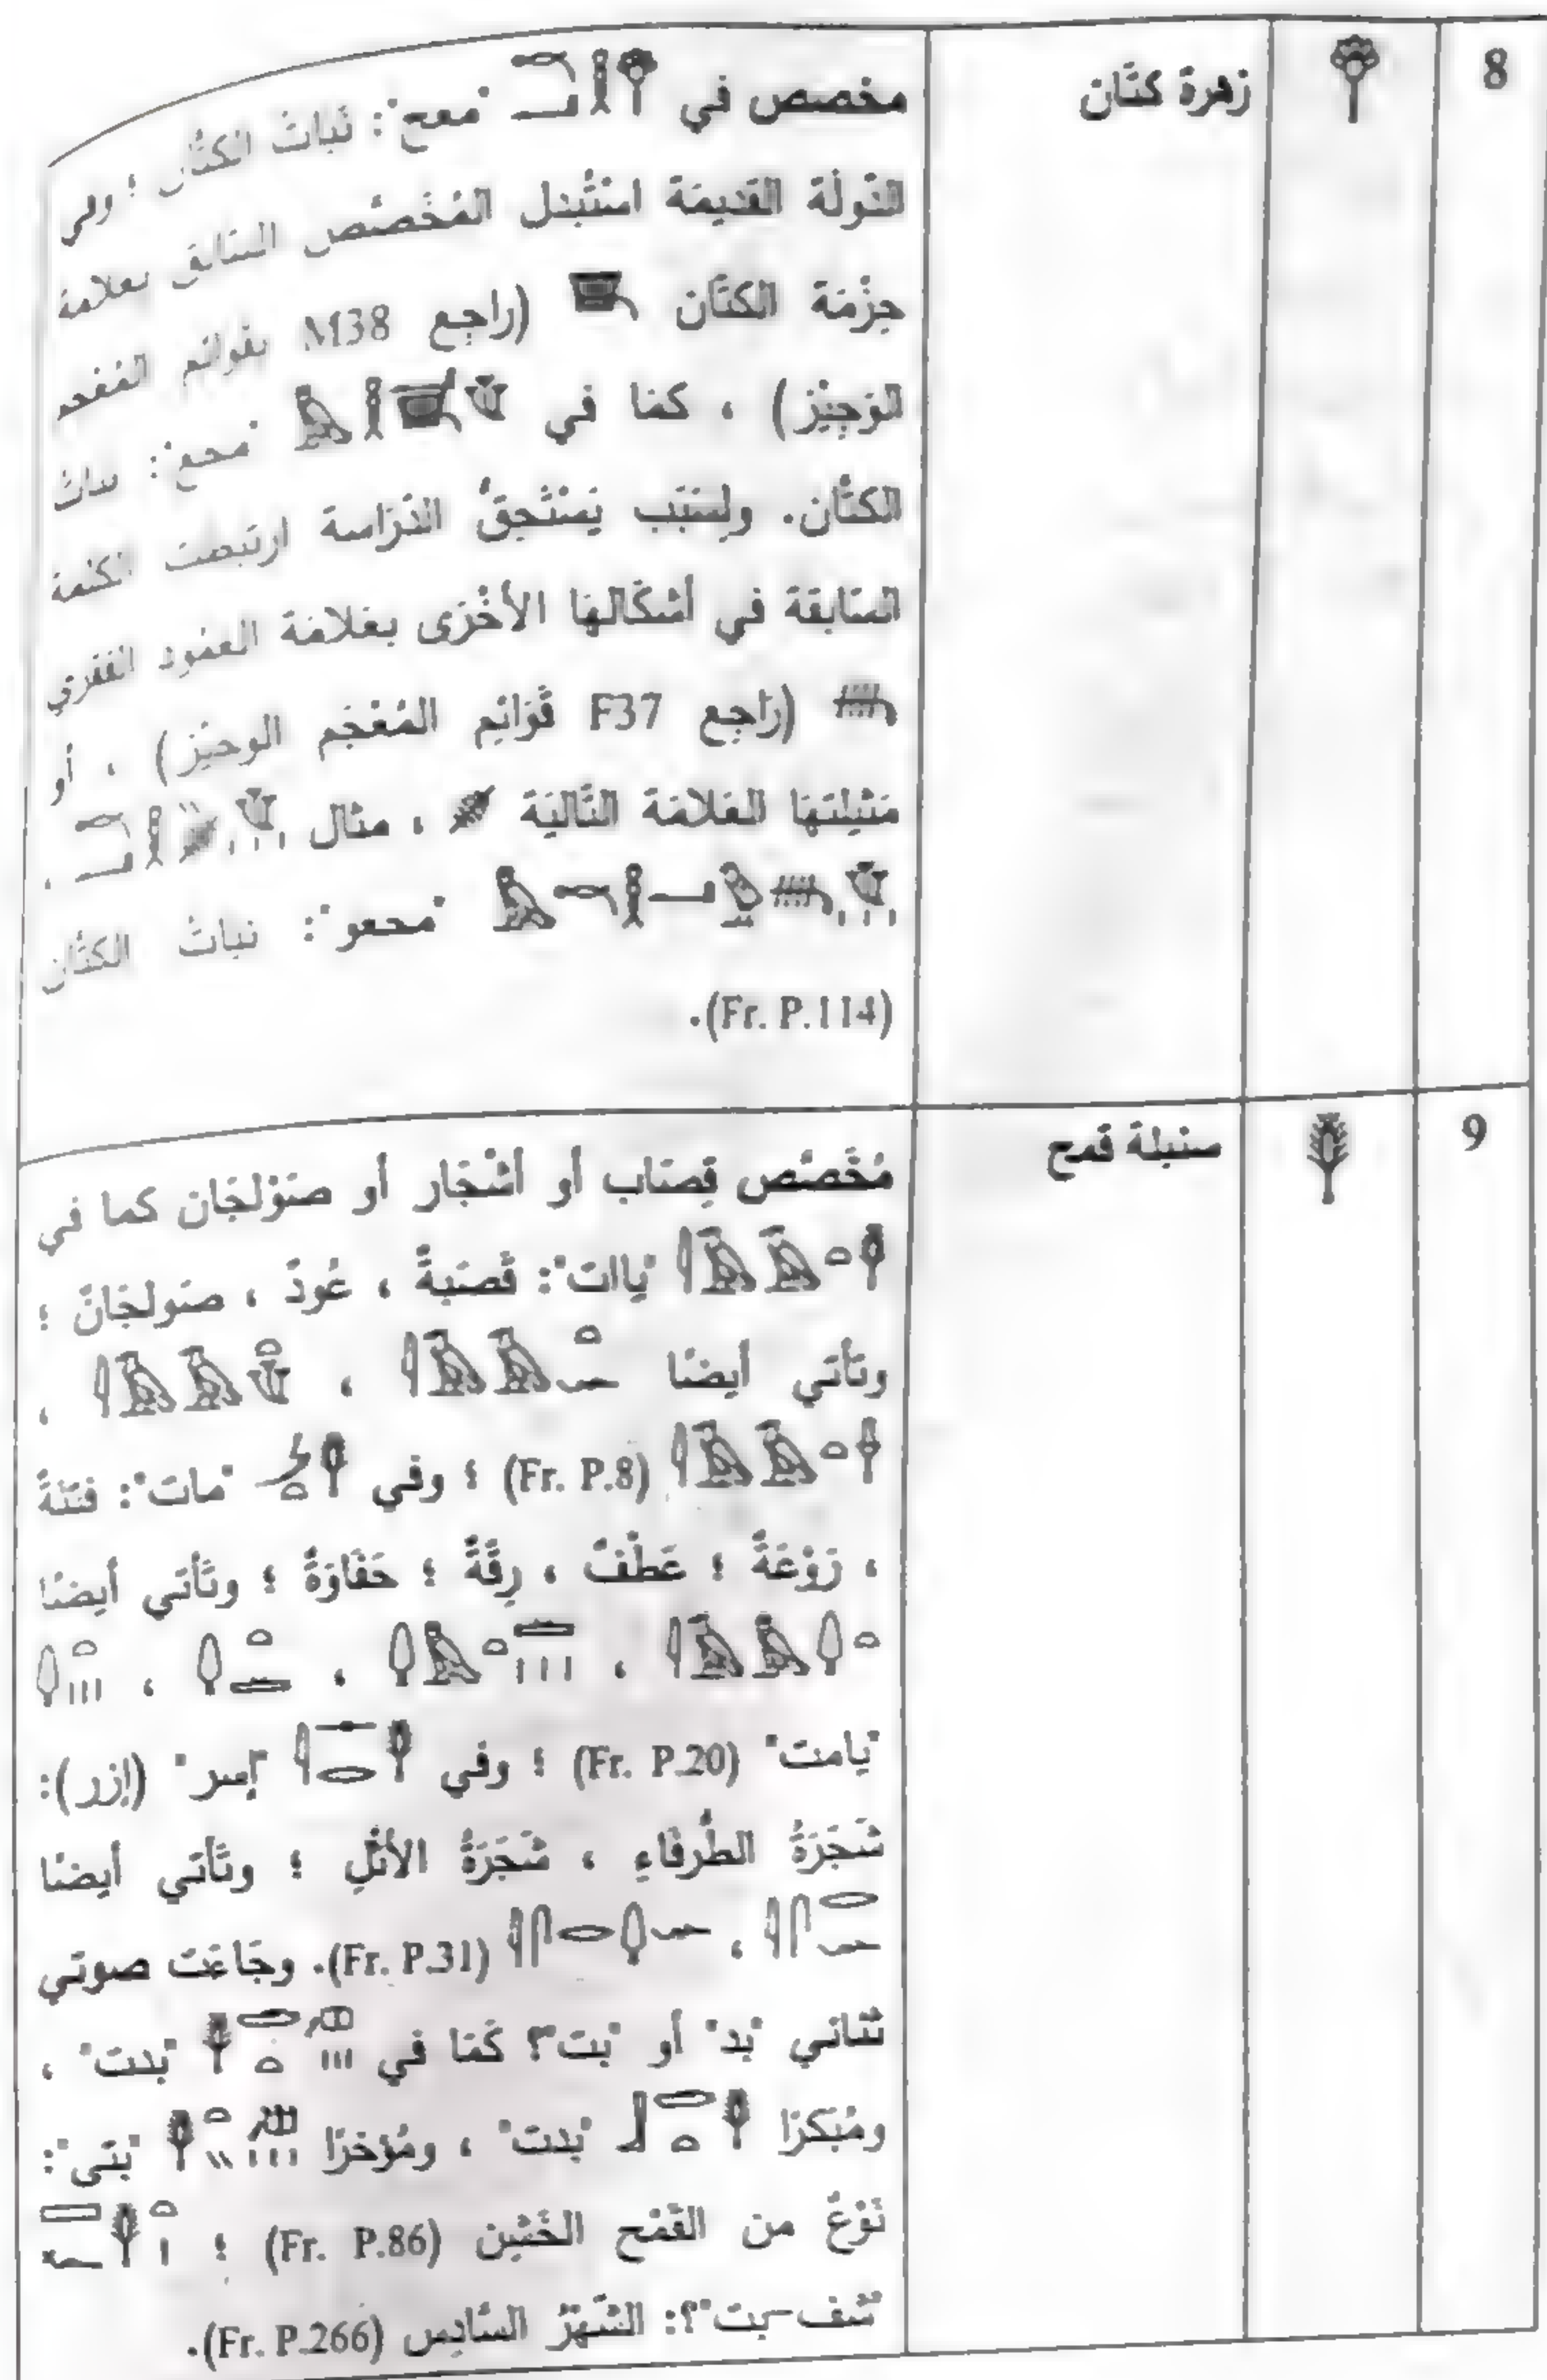 8
زهرة كتَّان
مخصص في 𓌳𓂝𓎛𓇅 "معح": نَبَاتُ الكتَّان ؛ وفي
الدَّولَة القَديمَة اسْتُبْدل المُخَصَّص السَّابق بعلامة
حِزْمَة الكتَّان (راجع M38 بقوائم المُعْجم
الوَجِيْز) ، كمَا في "محع": نبات
الكتَّان. ولِسَبَب يَسْتَحِقُّ الدِّرَاسة ارتبطت الكلمة
السَّابقة في أشكَالهَا الأخْرَى بعَلامَة العمُود الفقري
(رَاجع F37 قَوَائِم المُعْجَم الوجيْز) ، أو
مَثيلتهَا العَلامَة التَّاليَة ، مثال ،
"محعو": نباتُ الكتَّان
(Fr. P.114).
9
سنبلة قمح
مُخَصَّص قِصَاب أو أشْجَار أو صَوْلجَان كما في
"ياات": قَصَبةٌ ، عُودٌ ، صَولجَانٌ ؛
وتَأتي أيضًا ، ،
(Fr. P.8) ؛ وفي "مات": فتنَةٌ
، رَوْعَةٌ ؛ عَطْفٌ ، رِقَّةٌ ؛ حَفَاوَةٌ ؛ وتَأتي أيضًا
، ، ،
"يامت" (Fr. P.20) ؛ وفي "إسر" (إزر):
شَجَرَةُ الطَّرفَاءِ ، شَجَرَةُ الأَثْلِ ؛ وتَأتي أيضًا
، (Fr. P.31). وجَاءَت صوتي
ثنَائي "بد" أو "بت"؟ كَمَا في "بدت" ،
ومُبَكرًا "بدت" ، ومُؤَخرًا "بتى":
نَوْعٌ من القَمْح الخَشِن (Fr. P.86) ؛
"شف-بت"؟: الشَّهْرُ السَّادِس (Fr. P.266).